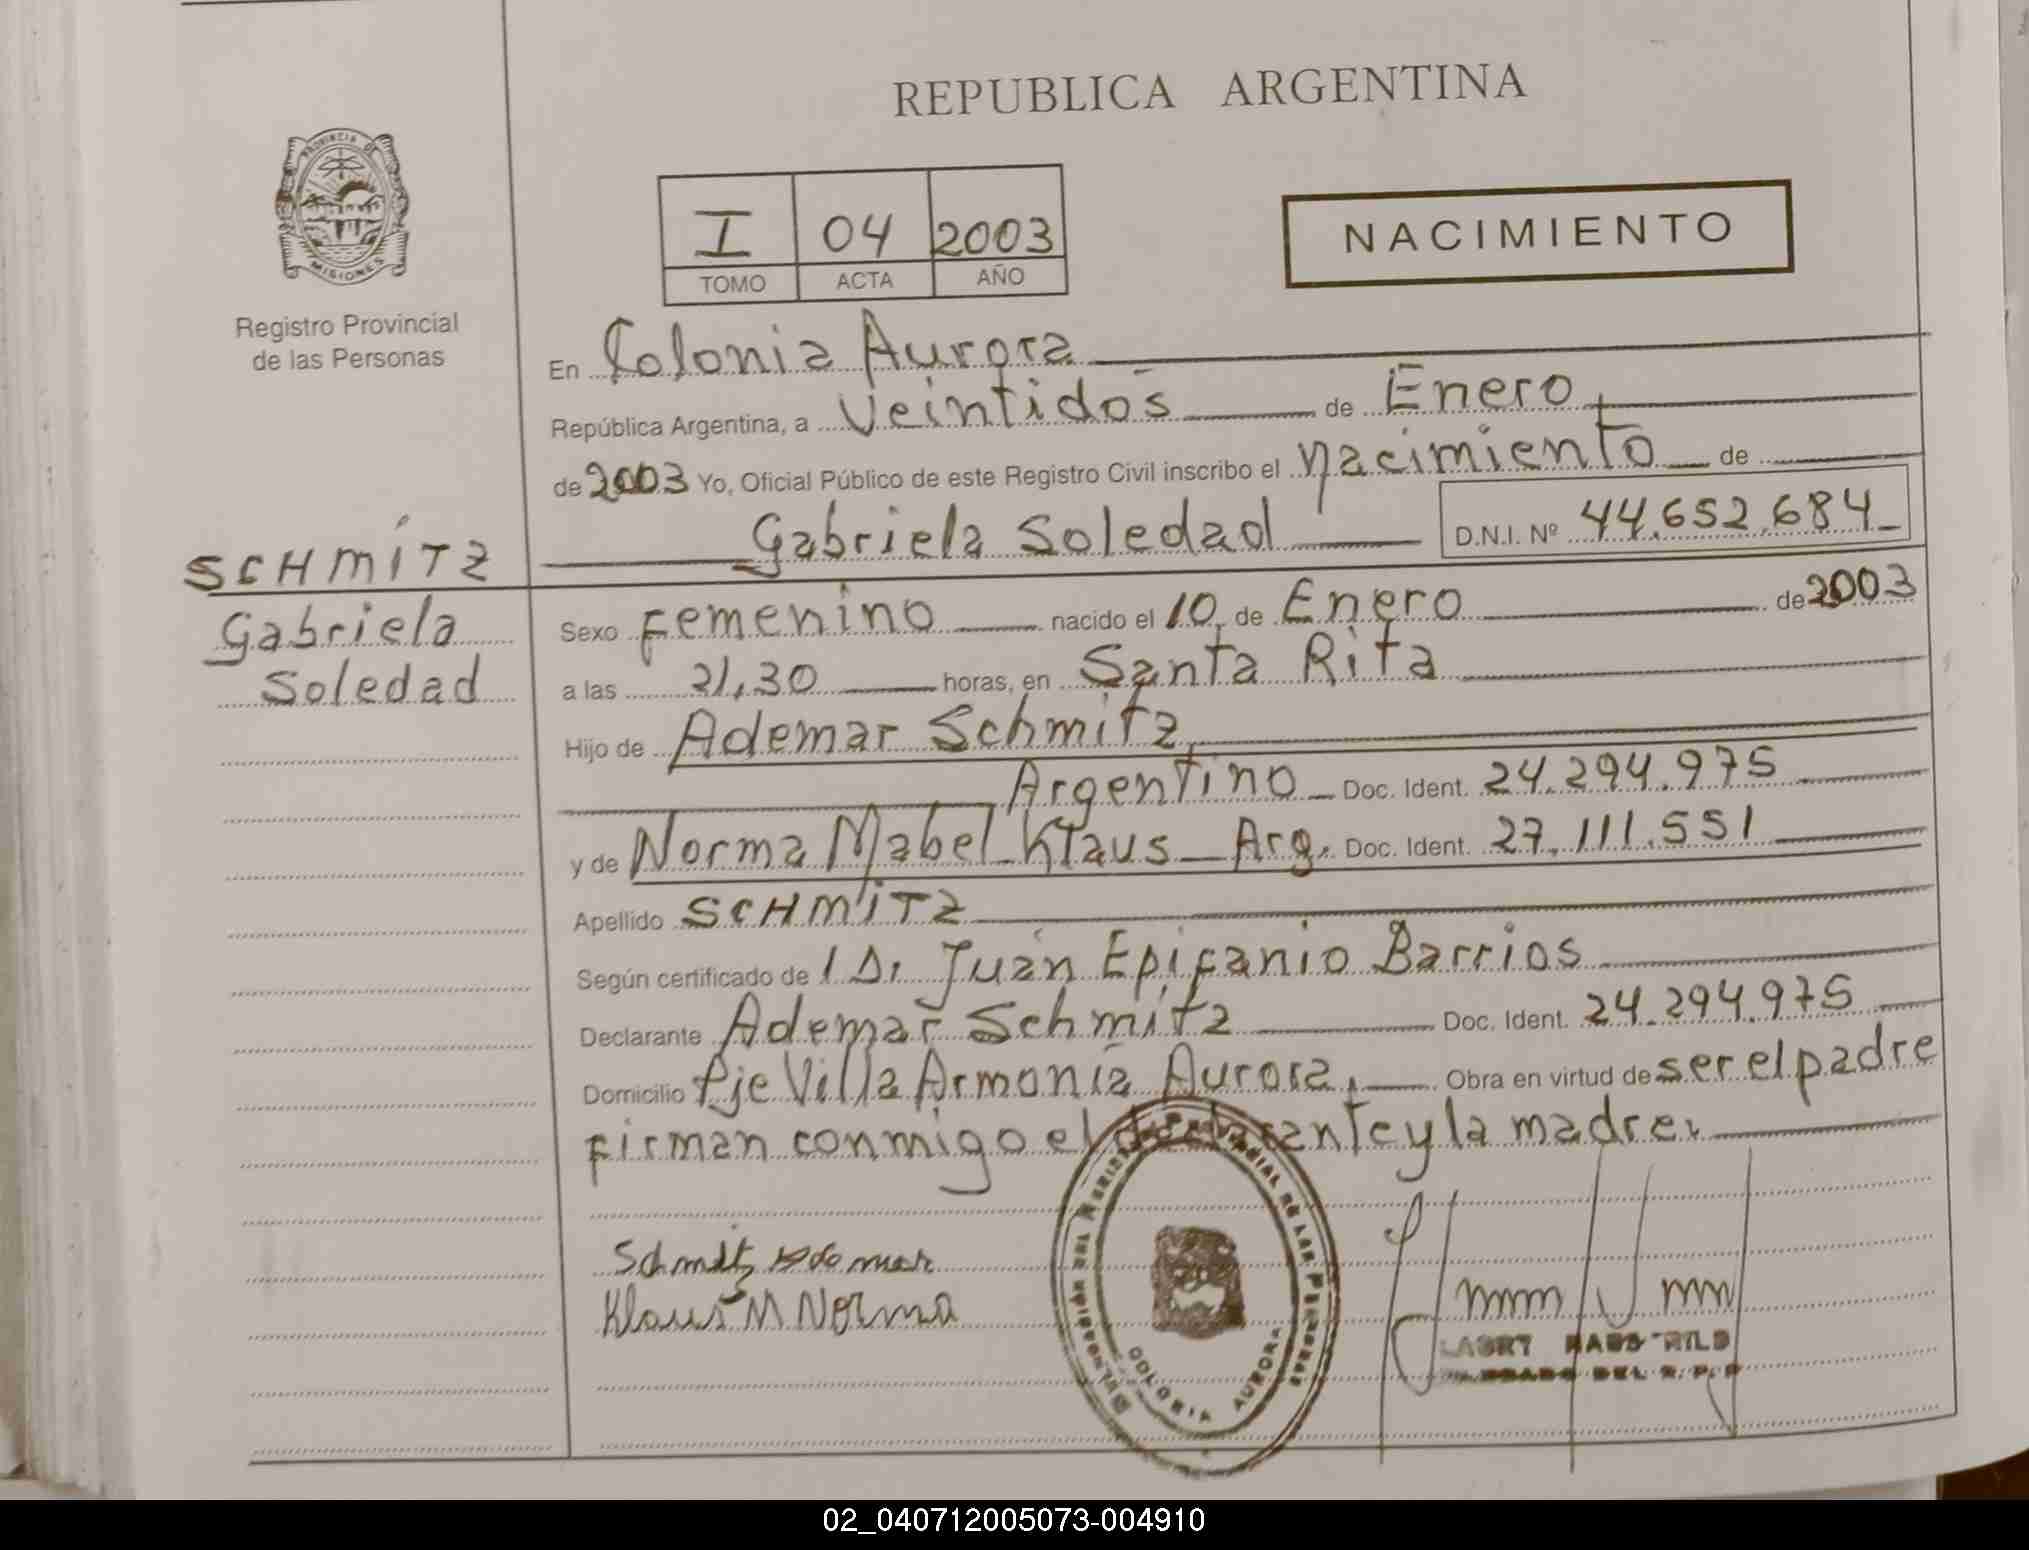 REPUBLICA ARGENTINA
PROVINCIA DE
MISIONES
Registro Provincial
de las Personas
I 04 2003
TOMO ACTA AÑO
NACIMIENTO
En Colonia Aurora
República Argentina, a Veintidós de Enero
de 2003 Yo, Oficial Público de este Registro Civil inscribo el nacimiento de
Gabriela Soledad D.N.I. Nº 44.652.684
SCHMÍTZ
Gabriela
Soledad
Sexo Femenino nacido el 10 de Enero de 2003
a las 21,30 horas, en Santa Rita
Hijo de Ademar Schmitz
Argentino Doc. Ident. 24.294.975
y de Norma Mabel Klaus Arg. Doc. Ident. 27.111.551
Apellido SCHMITZ
Según certificado de Juan Epifanio Barrios
Declarante Ademar Schmitz Doc. Ident. 24.294.975
Domicilio Pje Villa Armonía Aurora, Obra en virtud de ser el padre
firman conmigo el declarante y la madre.
Schmitz Ademar
Klaus M Norma
PROVINCIAL DE LAS PERSONAS
COLONIA AURORA
DEL R.P.P
02_040712005073-004910